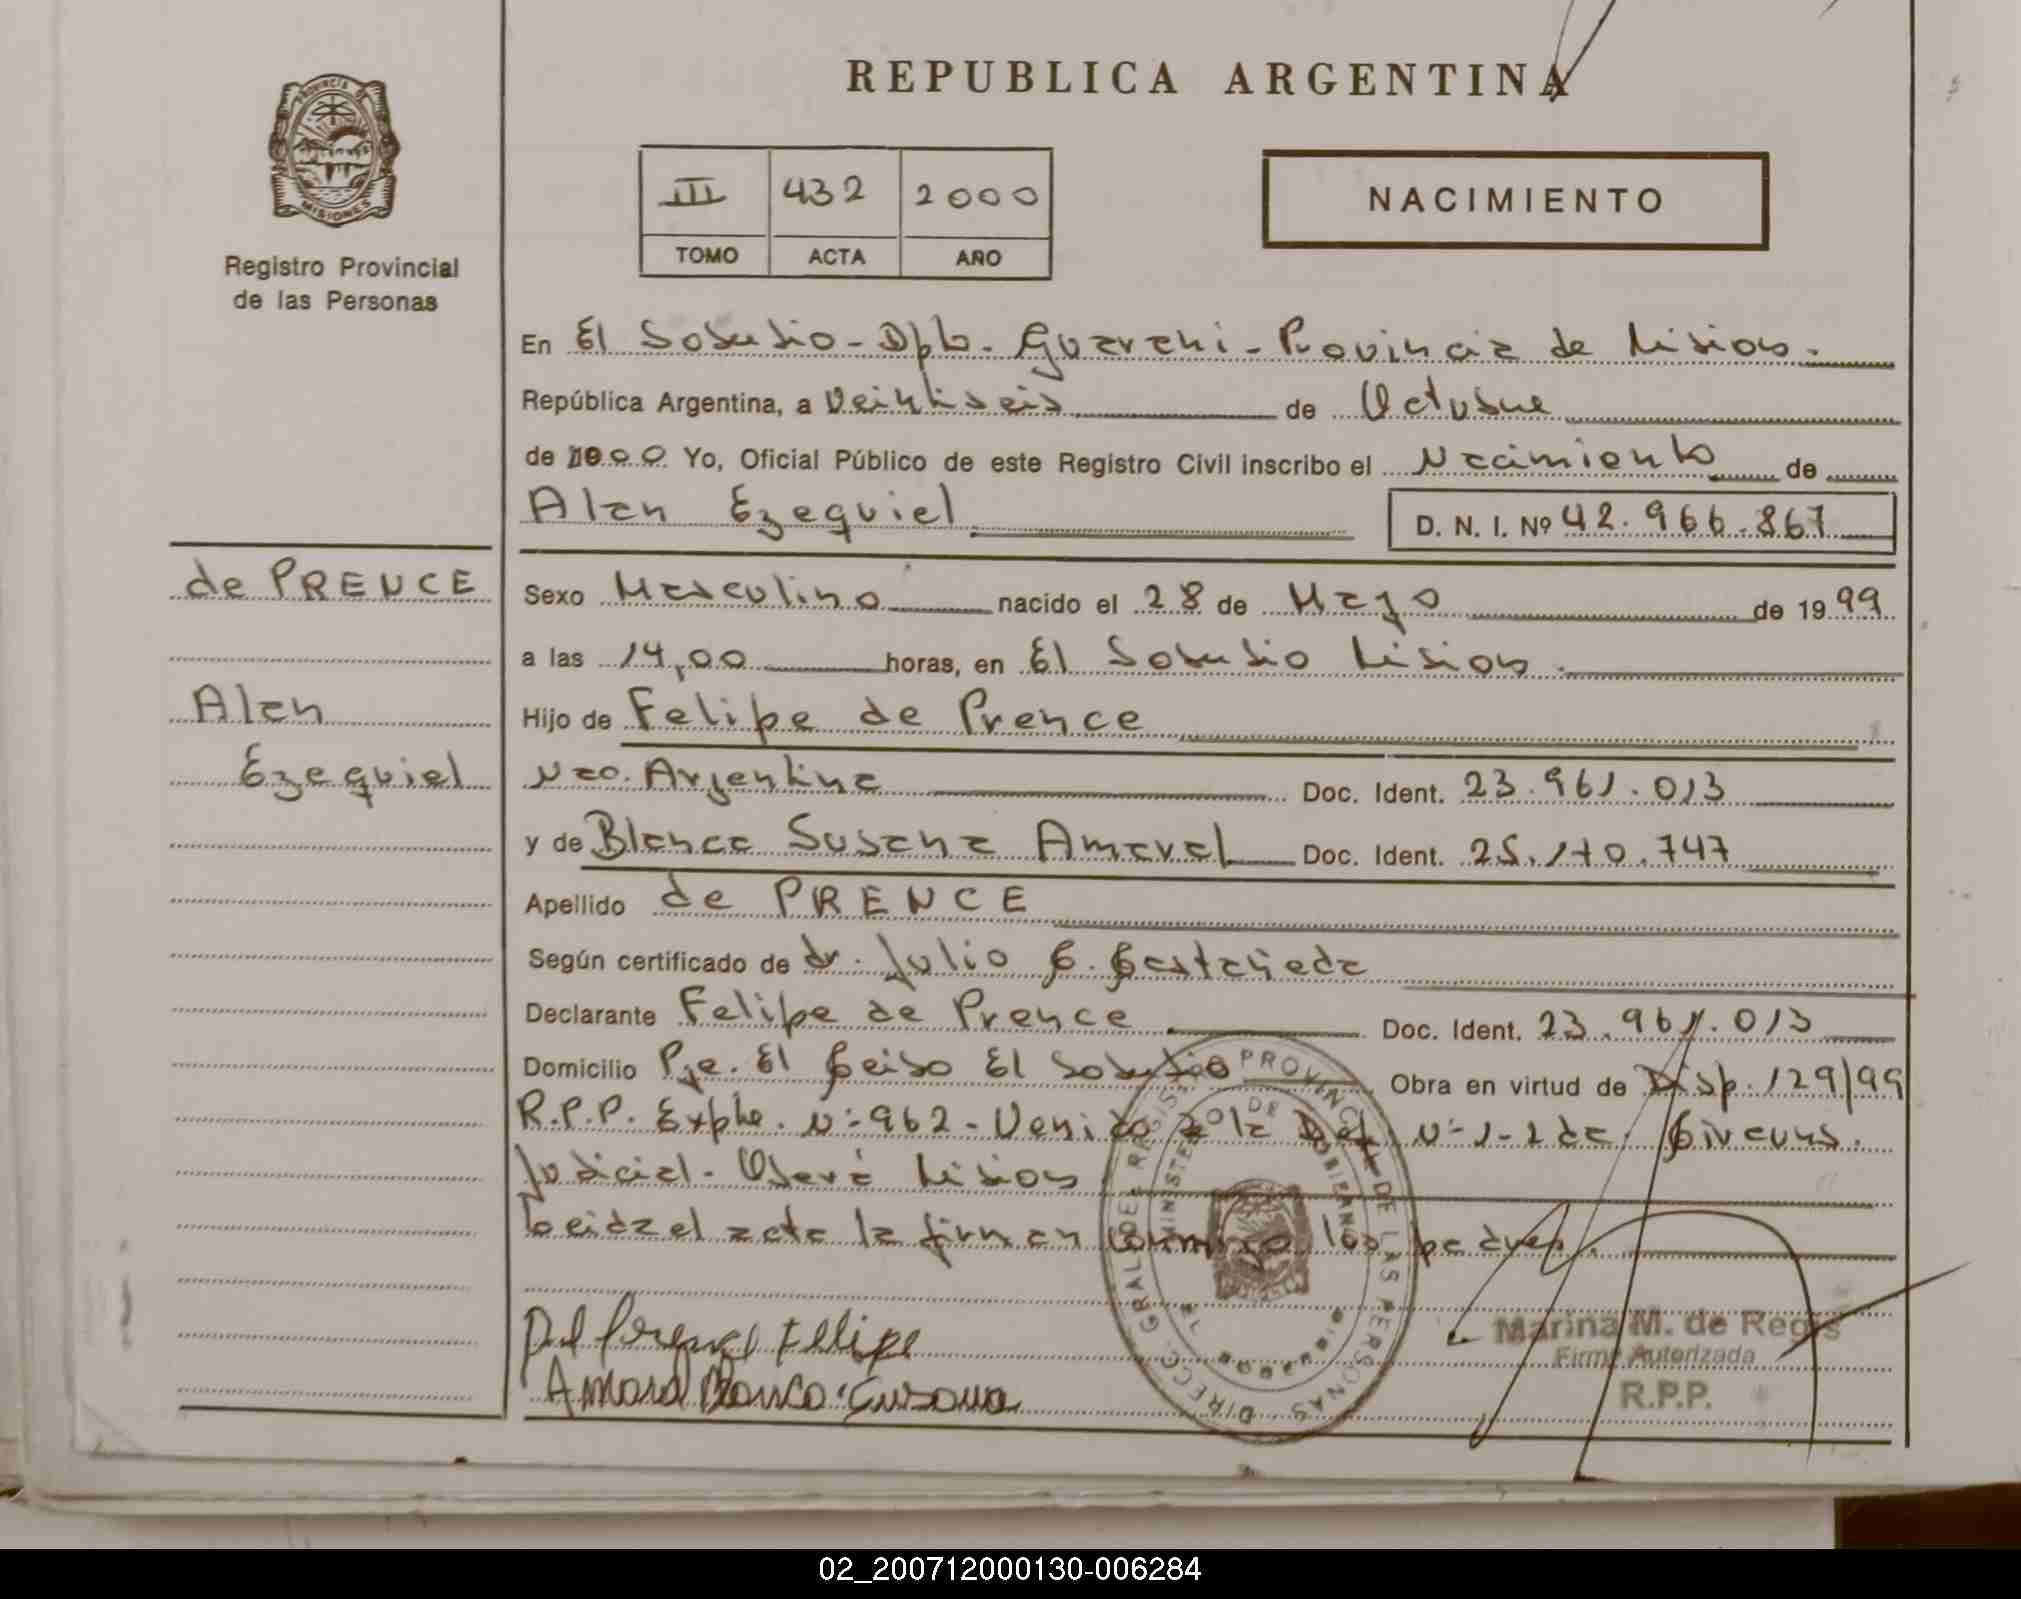 REPUBLICA ARGENTINA
PROVINCIA DE
MISIONES
Registro Provincial
de las Personas
III 432 2000
TOMO ACTA AÑO
NACIMIENTO
En El Soberbio - Dpto. Guarani - Provincia de Misiones.
República Argentina, a Veintiseis de Octubre
de 2000 Yo, Oficial Público de este Registro Civil inscribo el Nacimiento de
Alan Ezequiel D. N. I. Nº 42.966.867
de PRENCE
Alan
Ezequiel
Sexo Masculino nacido el 28 de Mayo de 1999
a las 14,00 horas, en El Soberbio Misiones.
Hijo de Felipe de Prence
Nac. Argentina Doc. Ident. 23.961.013
y de Blanca Susana Amaral Doc. Ident. 25.170.747
Apellido de PRENCE
Según certificado de dr. Julio C. Castañeda
Declarante Felipe de Prence Doc. Ident. 23.961.013
Domicilio Pje. El Ceibo El Soberbio Obra en virtud de Disp. 129/99
R.P.P. Expte. Nº 962 - Venido a la Nº 1-2da. Circuns.
Judicial - Oberá Misiones
Leida el acta la firman conmigo los padres.
Felipe
Amaral Blanca Susana
DIRECC. GRAL. DE REGISTRO PROVINCIAL DE LAS PERSONAS
MINISTERIO DE GOBIERNO
Marina M. de Regis
Firma Autorizada
R.P.P.
02_200712000130-006284